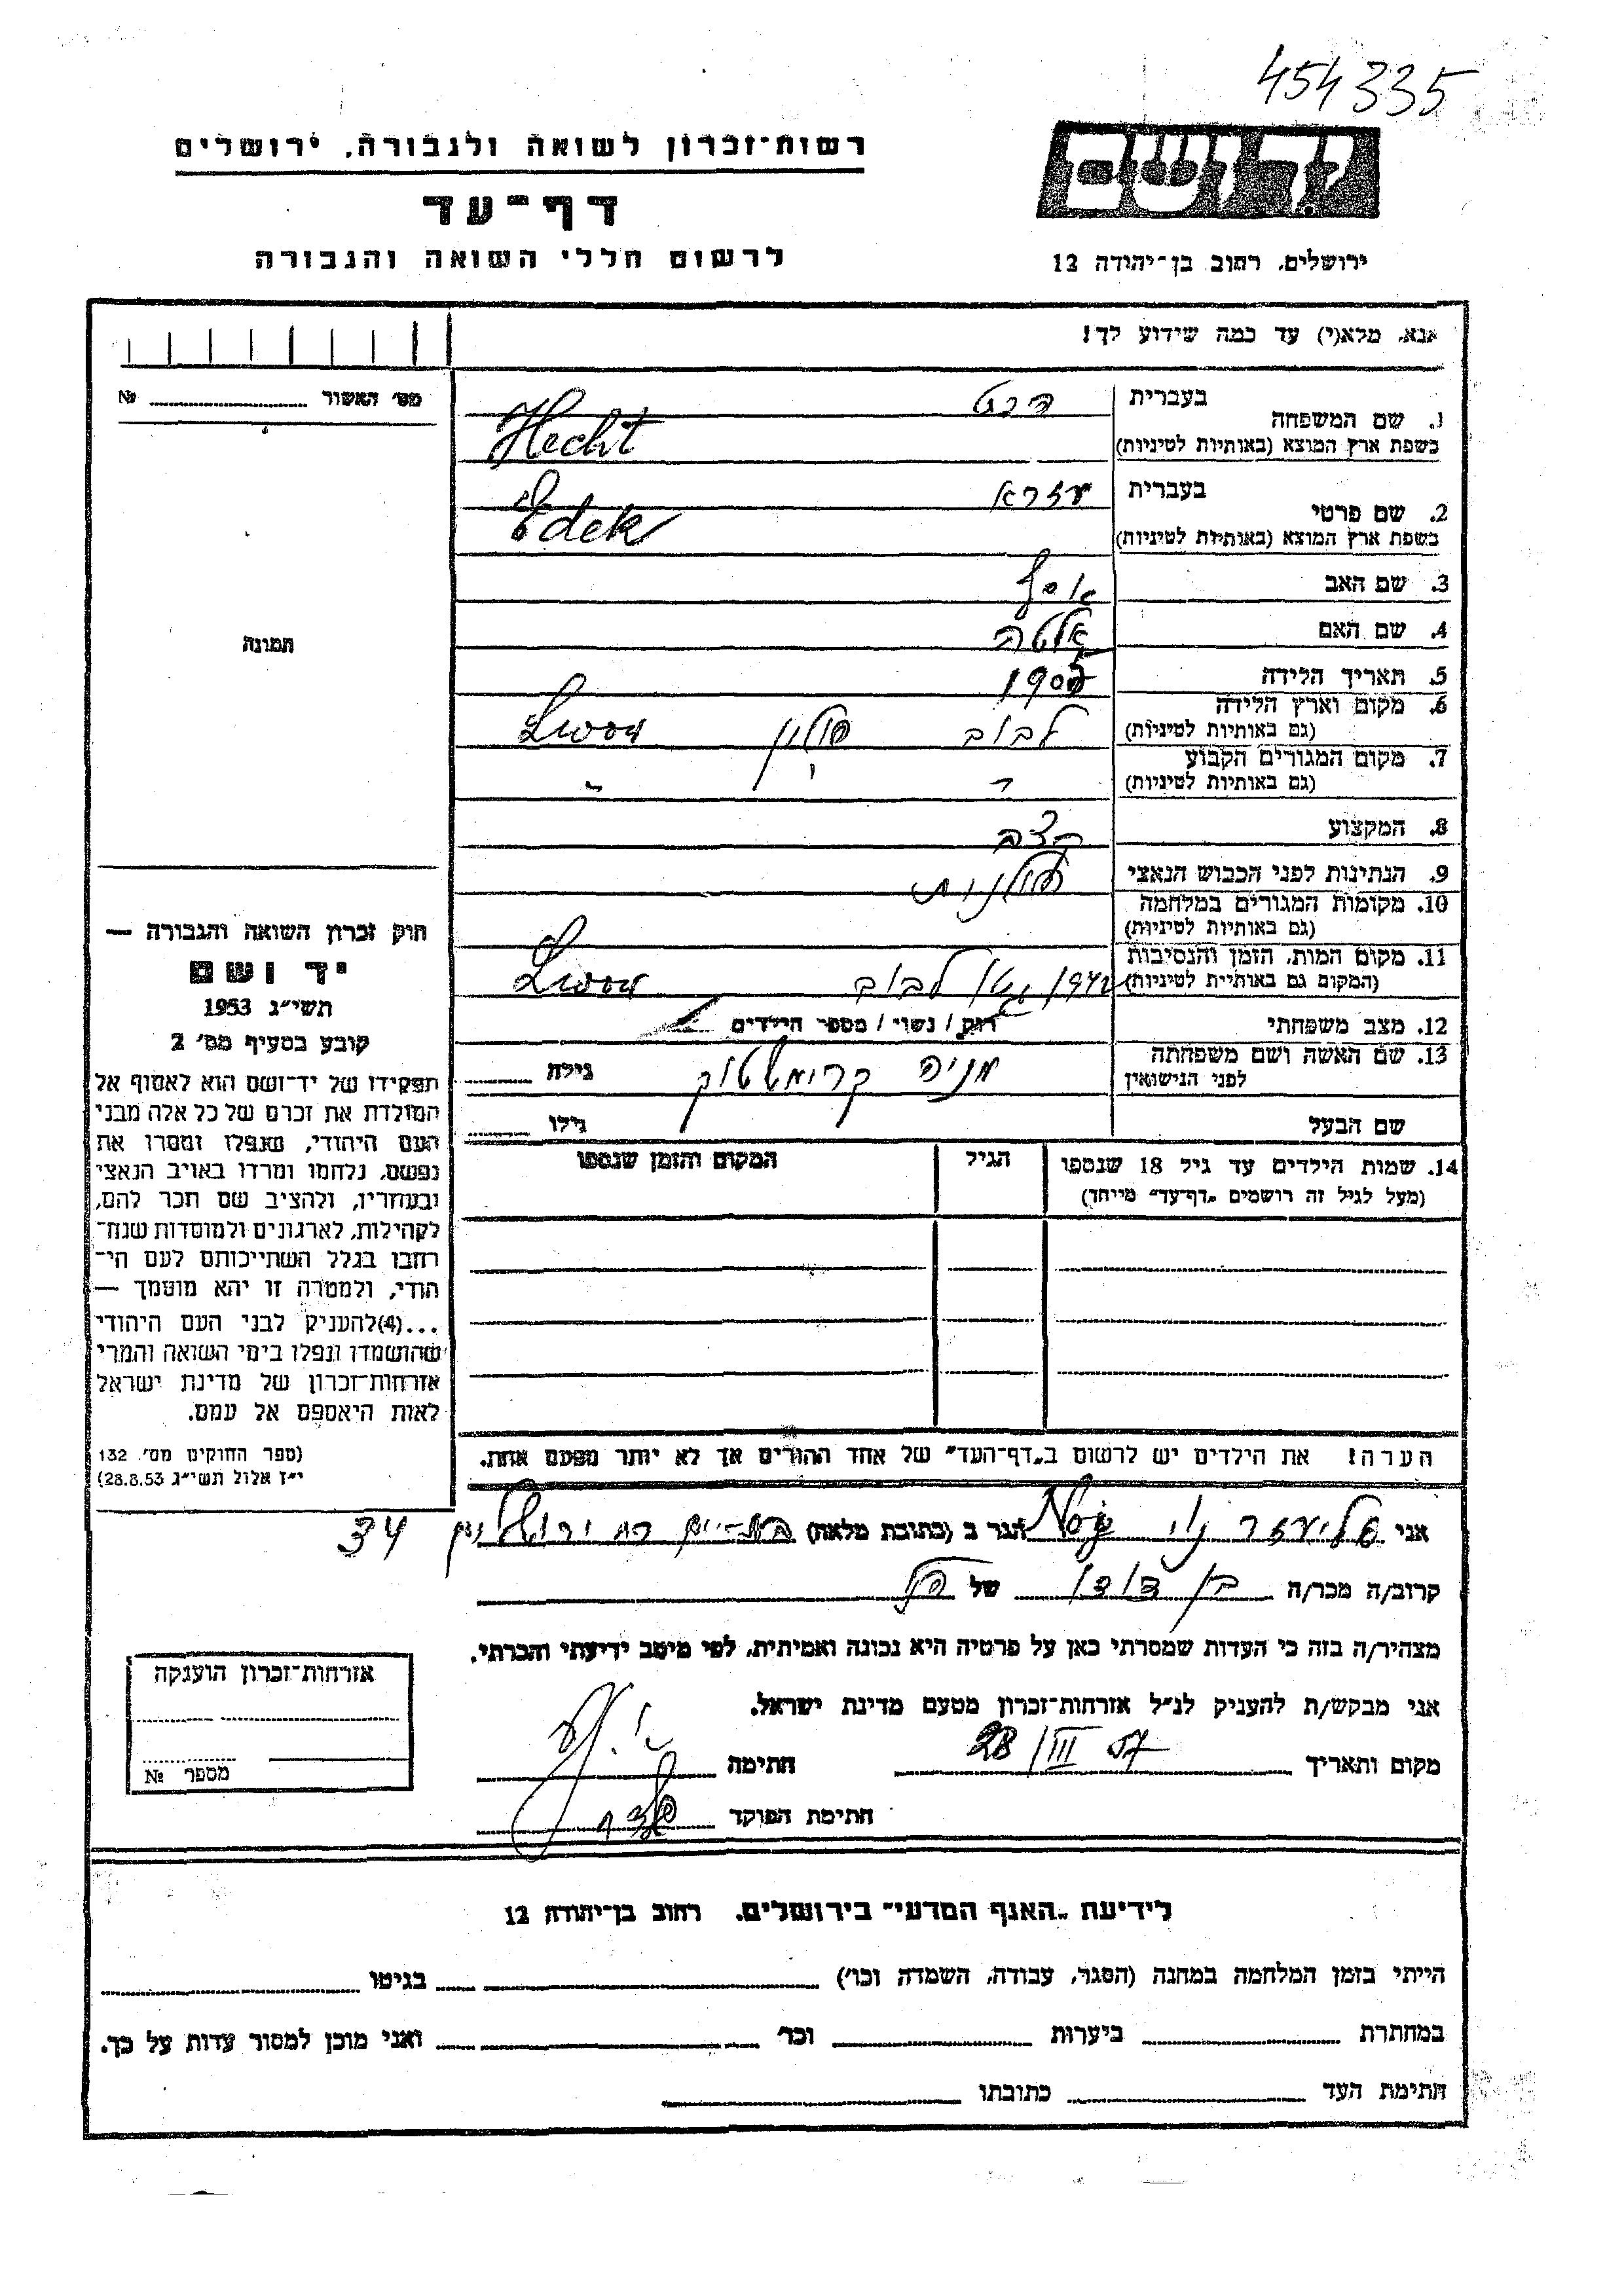 454335
רשות־זכרון לשואה ולגבורה, ירושלים
דף־עד
לרשום חללי השואה והגבורה
יד ושם
ירושלים, רחוב בן־יהודה 12
אנא, מלא(י) עד כמה שידוע לך!
מס׳ האשור № 
תמונה
1. שם המשפחה בעברית הכט
בשפת ארץ המוצא (באותיות לטיניות) Hecht
2. שם פרטי בעברית עזרא
בשפת ארץ המוצא (באותיות לטיניות) Edek
3. שם האב
4. שם האם אלטה
5. תאריך הלידה
6. מקום וארץ הלידה (גם באותיות לטיניות) לבוב פולין Lwow
7. מקום המגורים הקבוע (גם באותיות לטיניות) " "
8. המקצוע קצב
9. הנתינות לפני הכבוש הנאצי פולנית
10. מקומות המגורים במלחמה (גם באותיות לטיניות)
11. מקום המות, הזמן והנסיבות (המקום גם באותיות לטיניות) 1942 גטו לבוב Lwow
12. מצב משפחתי רוק / נשוי / מספר הילדים
13. שם האשה ושם משפחתה לפני הנישואין מניה גילה
שם הבעל גילו
14. שמות הילדים עד גיל 18 שנספו (מעל לגיל זה רושמים „דף־עד״ מייחד) הגיל המקום והזמן שנספו
הערה! את הילדים יש לרשום ב„דף־העד״ של אחד ההורים אך לא יותר מפעם אחת.
חוק זכרון השואה והגבורה —
יד ושם
תשי״ג 1953
קובע בסעיף מס׳ 2
תפקידו של יד־ושם הוא לאסוף אל
המולדת את זכרם של כל אלה מבני
העם היהודי, שנפלו ומסרו את
נפשם, נלחמו ומרדו באויב הנאצי
ובעוזריו, ולהציב שם וזכר להם,
לקהילות, לארגונים ולמוסדות שנח־
רבו בגלל השתייכותם לעם הי־
הודי, ולמטרה זו יהא מוסמך —
...(4)להעניק לבני העם היהודי
שהושמדו ונפלו בימי השואה והמרי
אזרחות־זכרון של מדינת ישראל
לאות היאספם אל עמם.
(ספר החוקים מס׳ 132
י״ז אלול תשי״ג 28.8.53)
אני אליעזר הגר ב (כתובת מלאה) בת־ים רח ירושלים 34
קרוב/ה מכר/ה בן דודו של הנ״ל
מצהיר/ה בזה כי העדות שמסרתי כאן על פרטיה היא נכונה ואמיתית, לפי מיטב ידיעתי והכרתי.
אני מבקש/ת להעניק לנ״ל אזרחות־זכרון מטעם מדינת ישראל.
מקום ותאריך 28/III 57 חתימה
חתימת הפוקד
אזרחות־זכרון הוענקה
מספר №
לידיעת „האגף המדעי״ בירושלים, רחוב בן־יהודה 12
הייתי בזמן המלחמה במחנה (הסגר, עבודה, השמדה וכו׳) בגיטו
במחתרת ביערות וכו׳ ואני מוכן למסור עדות על כך.
חתימת העד כתובתו